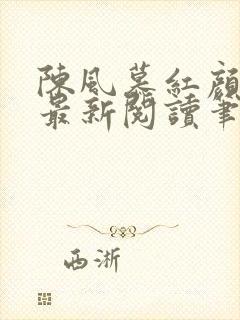 陳風慕紅顏
最新閱讀筆
西淅